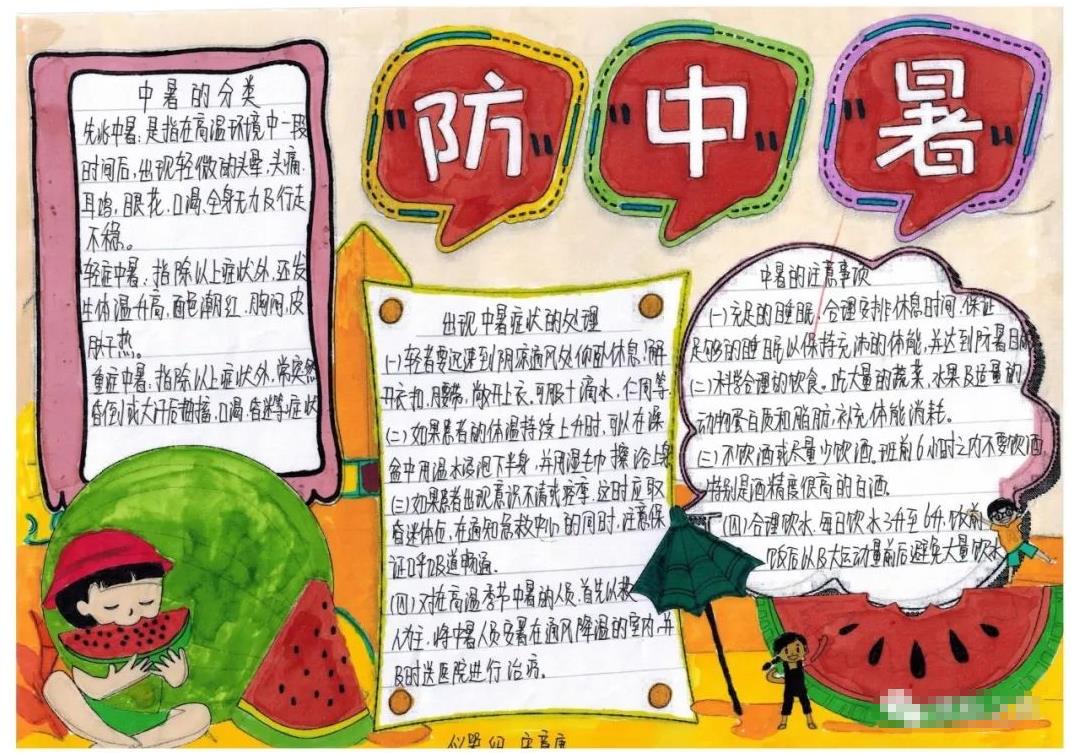 "防" "中" "暑"
中暑的分类
先兆中暑，是指在高温环境中一段
时间后，出现轻微的头晕、头痛、
耳鸣、眼花、口渴、全身无力及行走
不稳。
轻症中暑，指除以上症状外，还发
生体温升高，面色潮红，胸闷，皮
肤干热。
重症中暑，指除以上症状外，常突然
昏倒或大汗后抽搐、口渴、昏迷等症状
出现中暑症状的处理
(一)轻者要迅速到阴凉通风处仰卧休息，解
开衣扣，腰带，敞开上衣，可服十滴水、仁丹等
(二)如果患者的体温持续上升时，可以在澡
盆中用温水浸泡下半身，并用湿毛巾擦浴上身
(三)如果患者出现意识不清或痉挛，这时应取
昏迷体位，在通知急救中心的同时，注意保
证呼吸道畅通。
(四)对在高温季节中暑的人员，首先以救
人为主，将中暑人员安置在通风降温的室内，并
及时送医院进行治疗。
中暑的注意事项
(一)充足的睡眠，合理安排休息时间，保证
足够的睡眠以保持充沛的体能，并达到防暑目
(二)科学合理的饮食。吃大量的蔬菜、水果及适量的
动物蛋白质和脂肪，补充体能消耗。
(三)不饮酒或尽量少饮酒。班前6小时之内不要饮酒
特别是酒精度很高的白酒。
(四)合理饮水，每日饮水3升至6升，饭前
饭后以及大运动量前后避免大量饮水